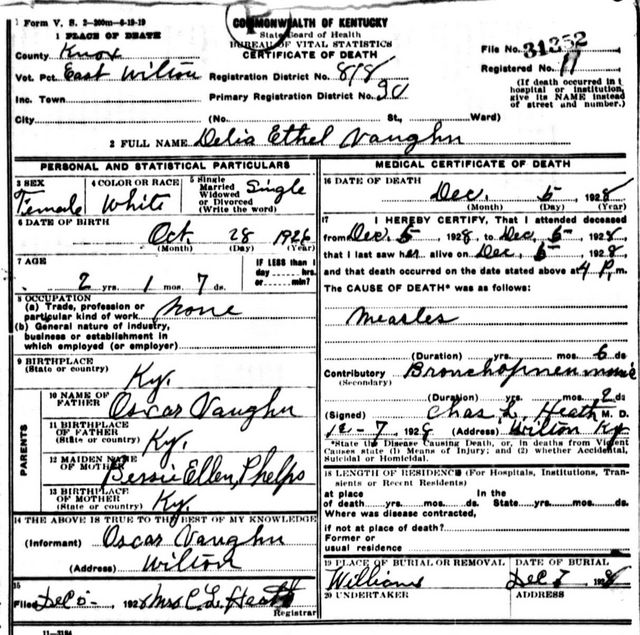 Form V. S. 2—200m—6-19-19
1 PLACE OF DEATH
County Knox
Vot. Pct. East Wilton
Inc. Town
City (No. St., Ward)
COMMONWEALTH OF KENTUCKY
State Board of Health
BUREAU OF VITAL STATISTICS
CERTIFICATE OF DEATH
Registration District No. 878
Primary Registration District No.
File No. 31352
Registered No. 11
(If death occurred in a
hospital or institution,
give its NAME instead
of street and number.)
2 FULL NAME Delia Ethel Vaughn
PERSONAL AND STATISTICAL PARTICULARS
3 SEX
Female
4 COLOR OR RACE
White
5 Single
Married
Widowed
or Divorced
(Write the word)
Single
6 DATE OF BIRTH
Oct. 28 1926
(Month) (Day) (Year)
7 AGE
2 yrs. 1 mos. 7 ds.
IF LESS than 1
day hrs.
or min?
8 OCCUPATION
(a) Trade, profession or
particular kind of work none
(b) General nature of industry,
business or establishment in
which employed (or employer)
9 BIRTHPLACE
(State or country)
Ky.
PARENTS
10 NAME OF
FATHER
Oscar Vaughn
11 BIRTHPLACE
OF FATHER
(State or country)
Ky.
12 MAIDEN NAME
OF MOTHER
Bessie Ellen Phelps
13 BIRTHPLACE
OF MOTHER
(State or country)
Ky.
14 THE ABOVE IS TRUE TO THE BEST OF MY KNOWLEDGE
(Informant) Oscar Vaughn
(Address) Wilton
15
Filed Dec 192 Mrs C. L. Heath
Registrar
11—3184
MEDICAL CERTIFICATE OF DEATH
16 DATE OF DEATH
Dec. 5 1928
(Month) (Day) (Year)
17 I HEREBY CERTIFY, That I attended deceased
from Dec. 5 1928, to Dec. 5 1928
that I last saw her alive on Dec, 5 1928,
and that death occurred on the date stated above at 4 P. m.
The CAUSE OF DEATH* was as follows:
Measles
(Duration) yrs. mos. 6 ds
Contributory Bronchopneumonia
(Secondary)
(Duration) yrs. mos. 2 ds.
(Signed) Chas L. Heath M. D.
12-7 1928 (Address) Wilton Ky
*State the Disease Causing Death, or, in deaths from Violent
Causes state (1) Means of Injury; and (2) whether Accidental,
Suicidal or Homicidal.
18 LENGTH OF RESIDENCE (For Hospitals, Institutions, Tran-
sients or Recent Residents)
at place In the
of death yrs. mos. ds. State yrs. mos. ds.
Where was disease contracted,
if not at place of death?
Former or
usual residence
19 PLACE OF BURIAL OR REMOVAL
Williams
DATE OF BURIAL
Dec 7 1928
20 UNDERTAKER
ADDRESS